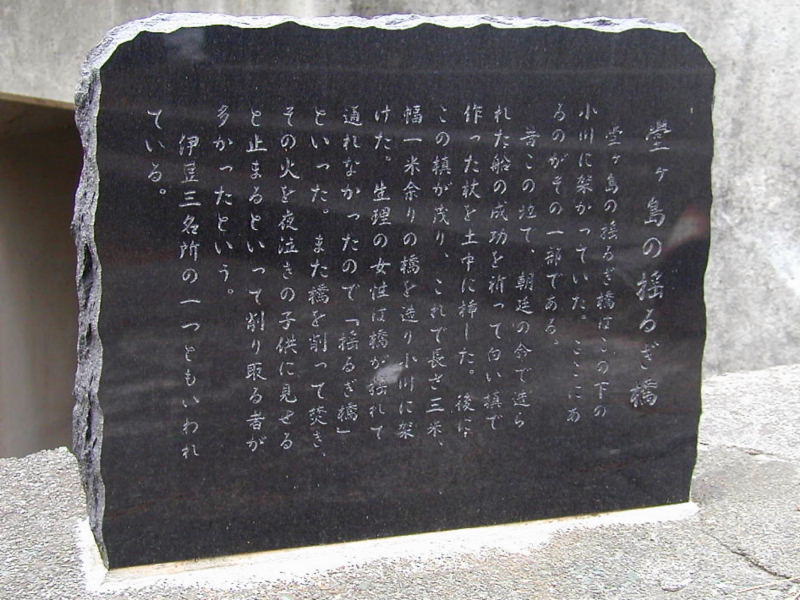 堂ヶ島の揺るぎ橋
堂ヶ島の揺るぎ橋はこの下の
小川に架かっていた。ここにあ
るのがその一部である。
昔この地で、朝廷の命で造ら
れた船の成功を祈って白い槙で
作った杖を土中に挿した。後に
この槙が茂り、これで長さ三米、
幅一米余りの橋を造り小川に架
けた。生理の女性は橋が揺れて
通れなかったので「揺るぎ橋」
といった。また橋を削って焚き、
その火を夜泣きの子供に見せる
と止まるといって削り取る者が
多かったという。
伊豆三名所の一つともいわれ
ている。